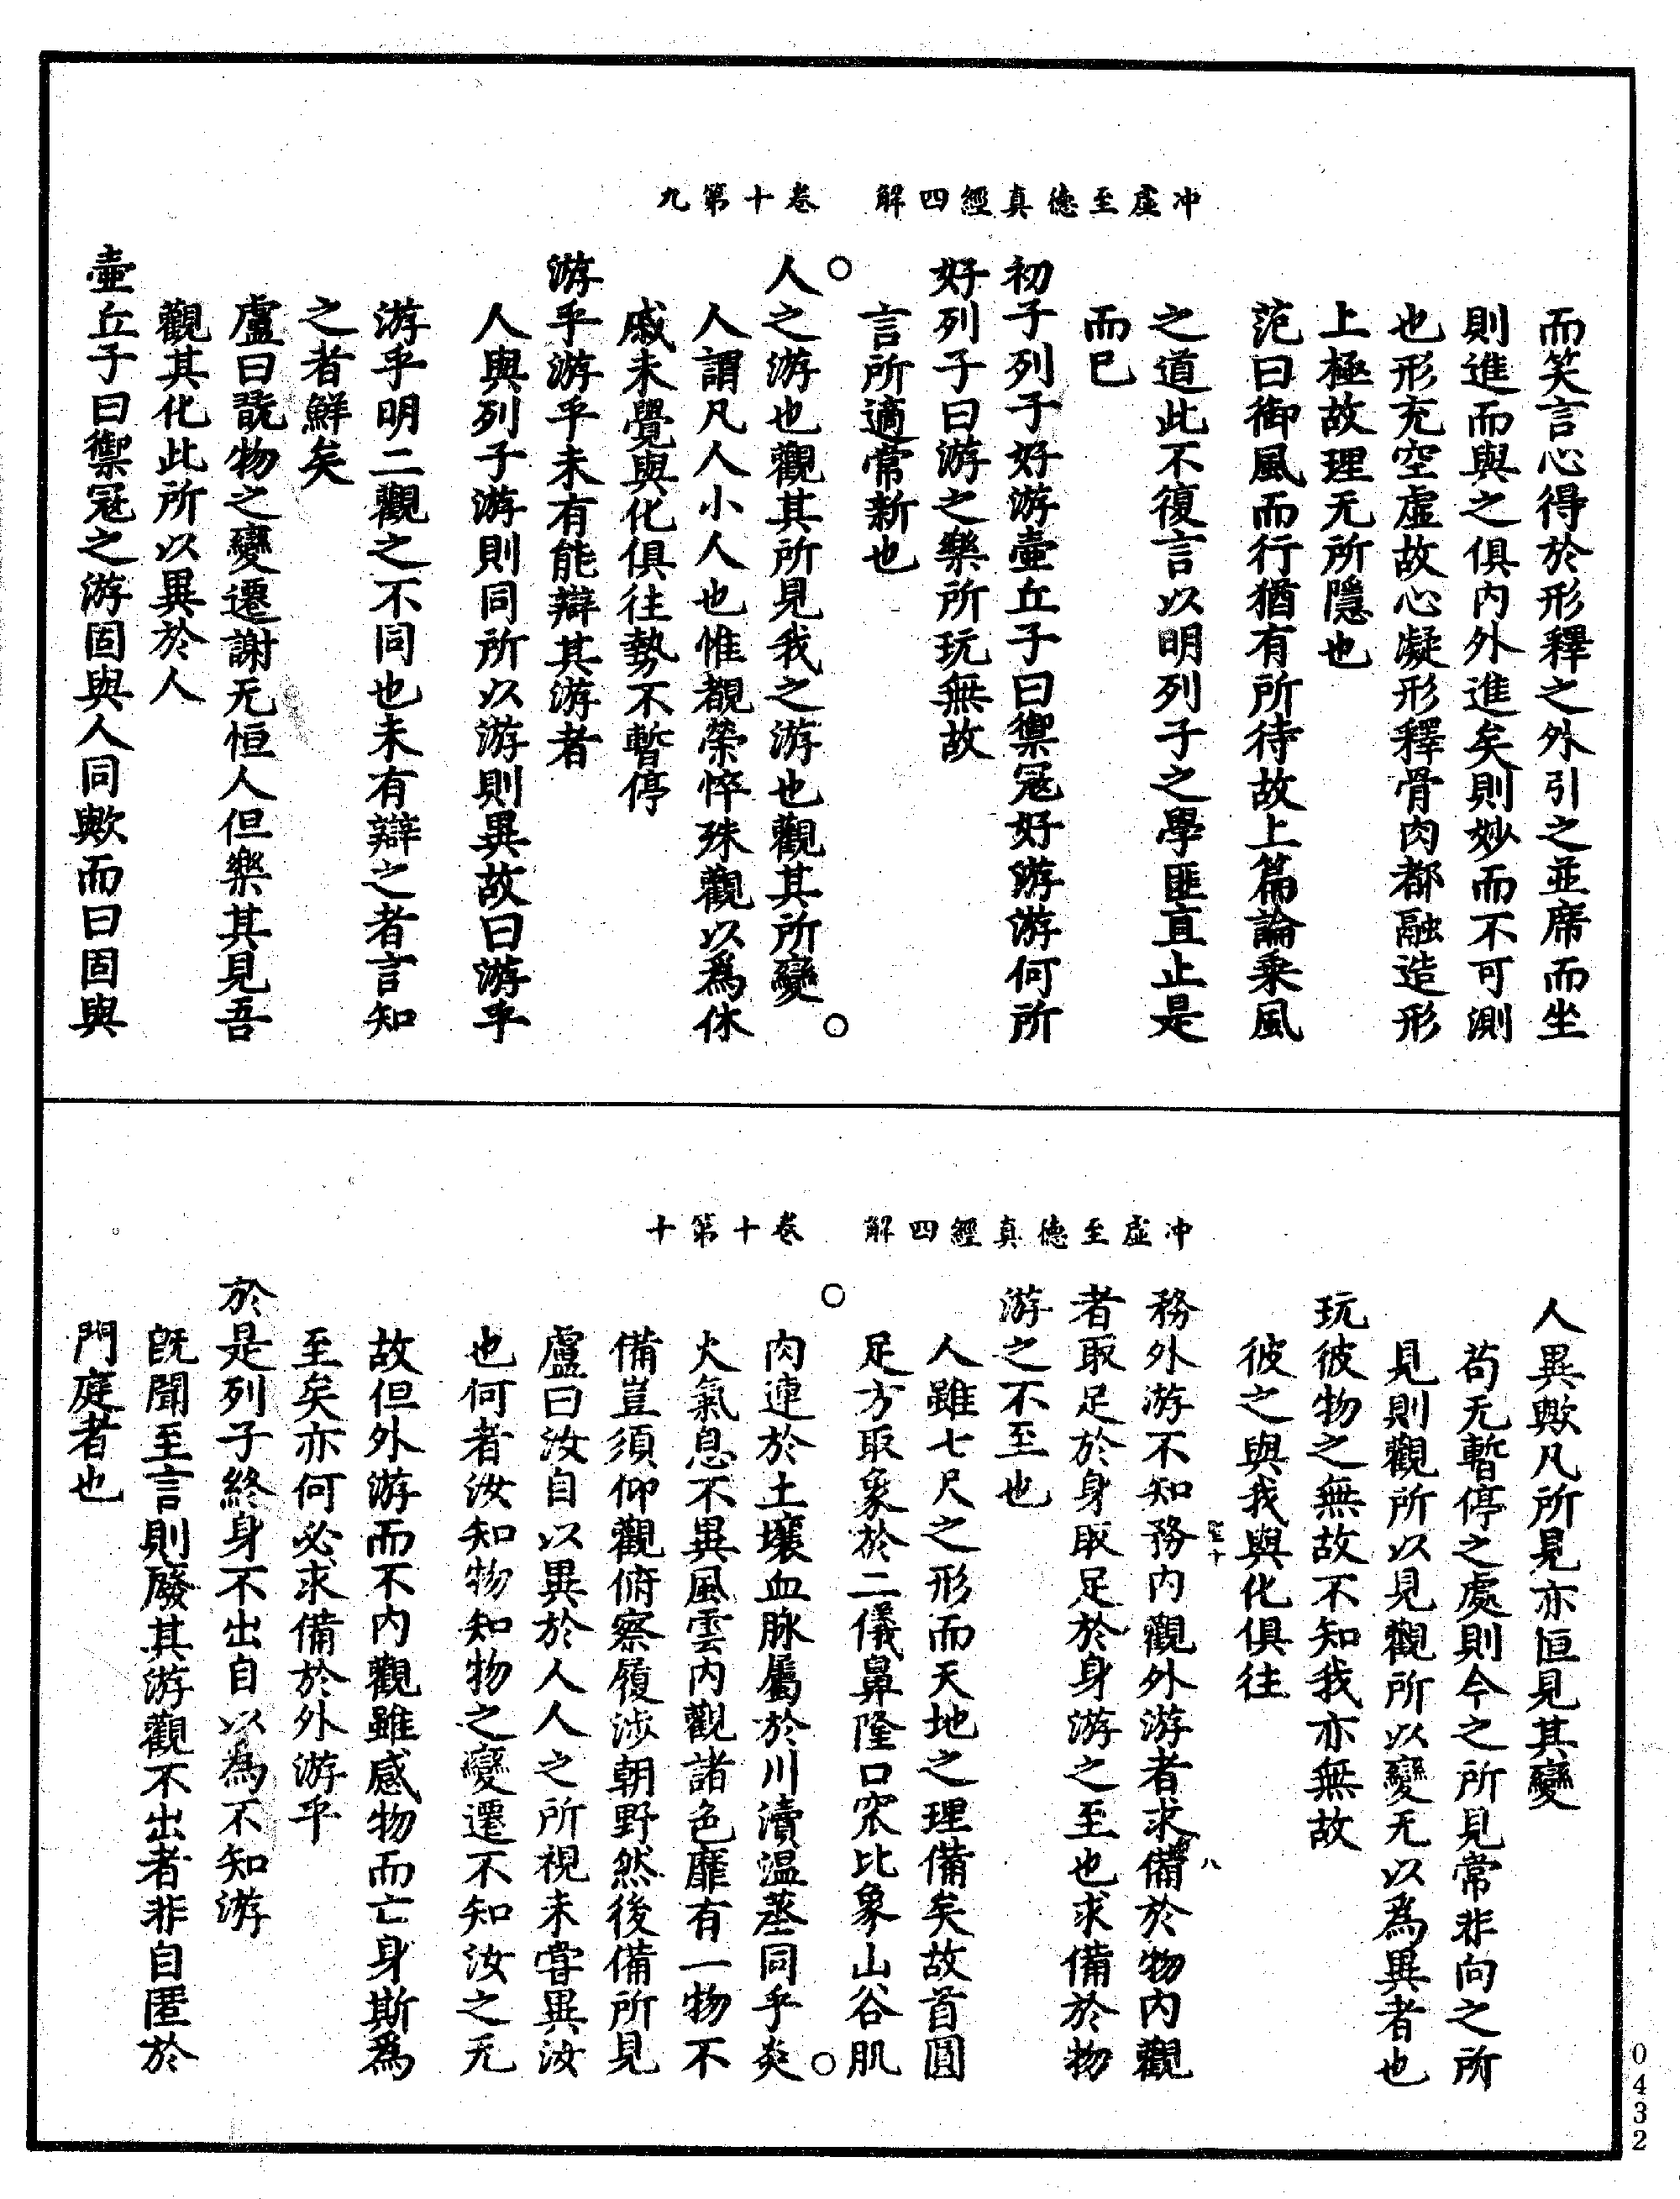 冲虛至德真經四解　卷十第九
而笑言心得於形釋之外引之並席而坐
則進而與之俱內外進矣則妙而不可測
也形充空虛故心凝形釋骨肉都融造形
上極故理无所隱也
范曰御風而行猶有所待故上篇論乘風
之道此不復言以明列子之學匪直止是
而已
初子列子好游壺丘子曰禦冦好游游何所
好列子曰游之樂所玩無故
言所適常新也
人之游也觀其所見我之游也觀其所變
人謂凡人小人也惟覩榮悴殊觀以爲休
戚未覺與化俱往勢不暫停
游乎游乎未有能辯其游者
人與列子游則同所以游則異故曰游乎
游乎明二觀之不同也未有辯之者言知
之者鮮矣
盧曰翫物之變遷謝无恒人但樂其見吾
觀其化此所以異於人
壺丘子曰禦冦之游固與人同歟而曰固與
冲虛至德真經四解　卷十第十
人異歟凡所見亦恒見其變
苟无暫停之處則今之所見常非向之所
見則觀所以見觀所以變无以爲異者也
玩彼物之無故不知我亦無故
彼之與我與化俱往
務外游不知務內觀外游者求備於物內觀
者取足於身取足於身游之至也求備於物
游之不至也
人雖七尺之形而天地之理備矣故首圓
足方取象於二儀鼻隆口窊比象山谷肌
肉連於土壤血脉屬於川瀆温蒸同乎炎
火氣息不異風雲內觀諸色靡有一物不
備豈須仰觀俯察履涉朝野然後備所見
盧曰汝自以異於人人之所視未甞異汝
也何者汝知物知物之變遷不知汝之无
故但外游而不內觀雖感物而亡身斯爲
至矣亦何必求備於外游乎
於是列子終身不出自以為不知游
旣聞至言則廢其游觀不出者非自匿於
門庭者也
0432